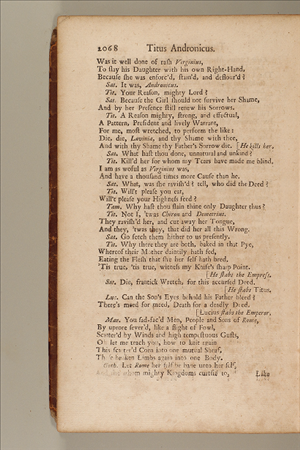 2068 Titus Andronicus.
Was it well done of raſh Virginius,
To ſlay his Daughter with his own Right-Hand,
Becauſe ſhe was enforc'd, ſtain'd, and deflour'd?
Sat. It was, Andronicus.
Tit. Your Reaſon, mighty Lord?
Sat. Becauſe the Girl ſhould not ſurvive her Shame,
And by her Preſence ſtill renew his Sorrows.
Tit. A Reaſon mighty, ſtrong, and effectual,
A Pattern, Preſident and lively Warrant,
For me, moſt wretched, to perform the like:
Die, die, Lavinia, and thy Shame with thee,
And with thy Shame thy Father's Sorrow die. [He kills her.
Sat. What haſt thou done, unnatural and unkind?
Tit. Kill'd her for whom my Tears have made me blind.
I am as woful as Virginius was,
And have a thouſand times more Cauſe than he.
Sat. What, was ſhe raviſh'd? tell, who did the Deed?
Tit. Will't pleaſe you eat,
Will't pleaſe your Highneſs feed?
Tam. Why haſt thou ſlain thine only Daughter thus?
Tit. Not I, 'twas Chiron and Demetrius.
They raviſh'd her, and cut away her Tongue,
And they, 'twas they, that did her all this Wrong.
Sat. Go fetch them hither to us preſently.
Tit. Why there they are both, baked in that Pye,
Whereof their Mother daintily hath fed,
Eating the Fleſh that ſhe her ſelf hath bred.
'Tis true, 'tis true, witneſs my Knife's ſharp Point.
[He ſtabs the Empreſs.
Sat. Die, frantick Wretch, for this accurſed Deed.
[He ſtabs Titus.
Luc. Can the Son's Eyes behold his Father bleed?
There's meed for meed, Death for a deadly Deed.
[Lucius ſtabs the Emperor.
Mar. You ſad-fac'd Men, People and Sons of Rome,
By uprore ſever'd, like a flight of Fowl,
Scatter'd by Winds and high tempeſtuous Guſts,
Oh let me teach you, how to knit again
This ſcatter'd Corn into one mutual Sheaf,
Theſe broken Limbs again into one Body.
Goth. Let Rome her ſelf be bane unto her ſelf,
And ſhe whom mighty Kingdoms curtſie to,
Like